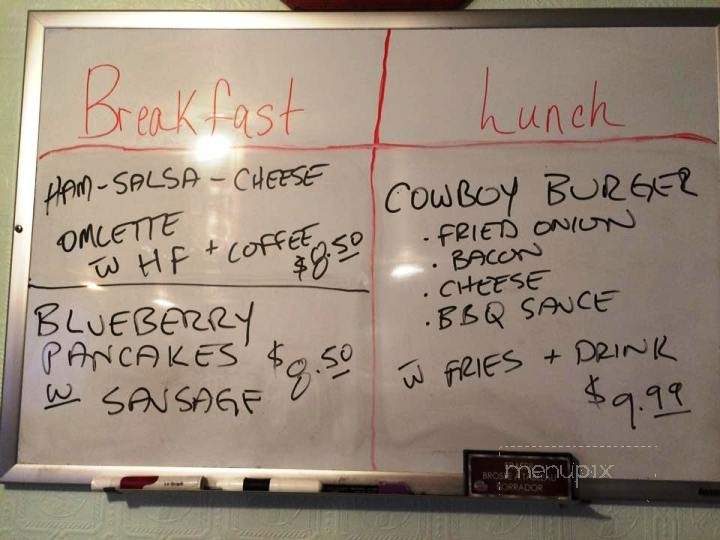 Breakfast
HAM-SALSA-CHEESE
OMLETTE
W HF + COFFEE $8.50
BLUEBERRY
PANCAKES $8.50
W SAUSAGE
Lunch
COWBOY BURGER
· FRIED ONION
· BACON
· CHEESE
· BBQ SAUCE
W FRIES + DRINK
$9.99
menupix
BORRADOR